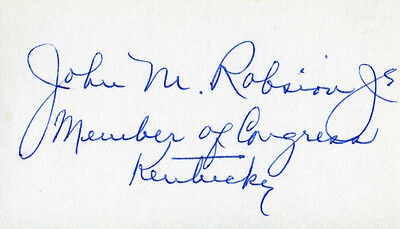 John M. Robsion Jr
Member of Congress
Kentucky